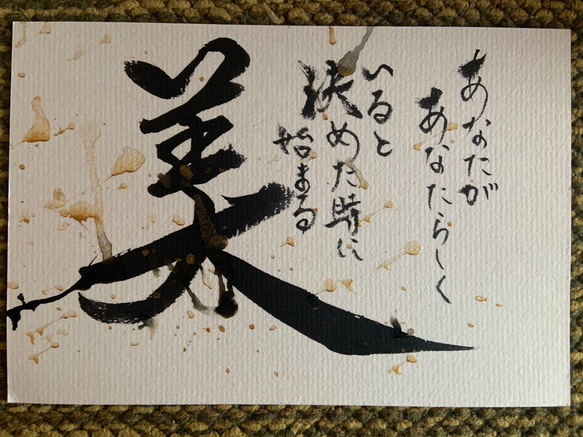 あなたが
あなたらしく
いると
決めた時に
始まる
美